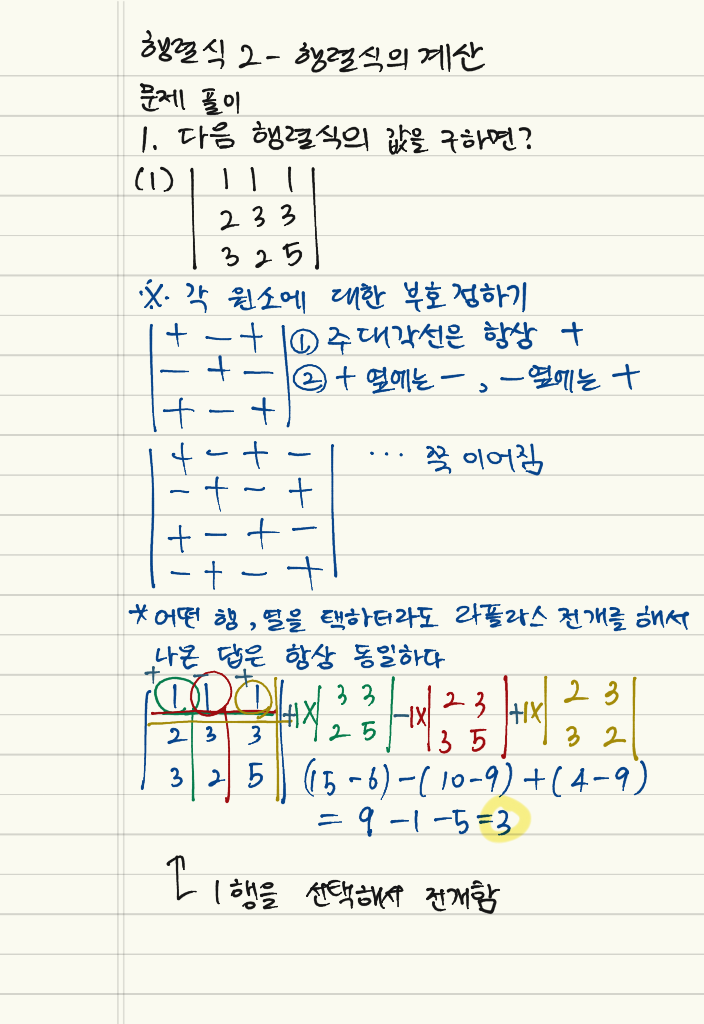 행렬식 2 - 행렬식의 계산
문제 풀이
1. 다음 행렬식의 값을 구하면?
(1) | 1 1 1 |
| 2 3 3 |
| 3 2 5 |
※ 각 원소에 대한 부호 정하기
| + - + | ① 주대각선은 항상 +
| - + - | ② + 옆에는 -, - 옆에는 +
| + - + |
| + - + - | ··· 쭉 이어짐
| - + - + |
| + - + - |
| - + - + |
* 어떤 행, 열을 택하더라도 라플라스 전개를 해서
나온 답은 항상 동일하다
+ - +
| 1 1 1 | +1×| 3 3 | -1×| 2 3 | +1×| 2 3 |
| 2 3 3 | | 2 5 | | 3 5 | | 3 2 |
| 3 2 5 | (15-6)-(10-9)+(4-9)
= 9-1-5=3
1행을 선택해서 전개함